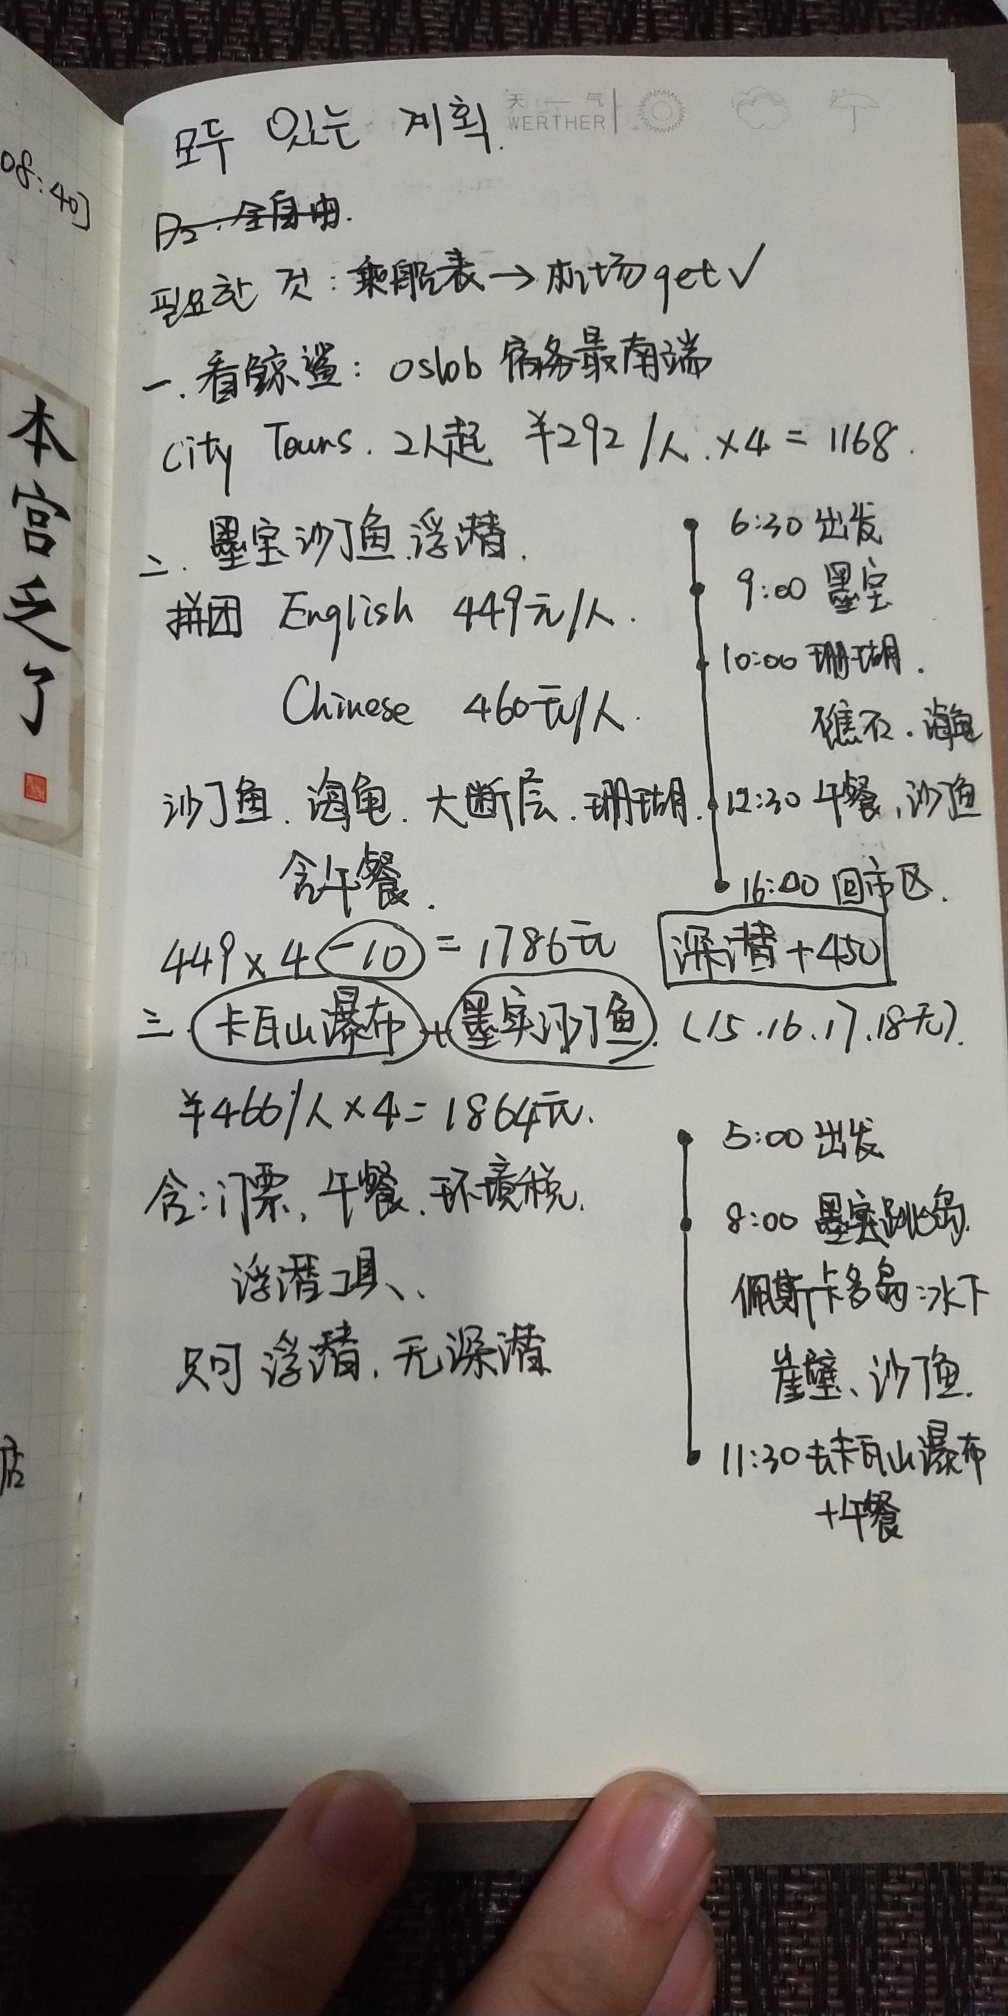 08:40]
本宫乏了
店
天 气
WERTHER
모두 있는 계획.
D2. 全自由.
필요한 것: 乘船表→机场get√
一. 看鲸鲨: oslob 宿务最南端
City Tours. 2人起 ¥292/人.×4=1168.
二. 墨宝沙丁鱼浮潜.
拼团 English 449元/人.
Chinese 460元/人.
沙丁鱼. 海龟. 大断层. 珊瑚.
含午餐.
449×4-10=1786元
6:30 出发
9:00 墨宝
10:00 珊瑚.
礁石. 海龟
12:30 午餐, 沙丁鱼
16:00 回市区.
深潜+450
三. 卡瓦山瀑布+墨宝沙丁鱼. (15.16.17.18无).
¥466/人×4=1864元.
含:门票, 午餐. 环境税.
浮潜工具、
只可浮潜, 无深潜
5:00 出发
8:00 墨宝跳岛.
佩斯卡多岛:水下
崖壁、沙丁鱼.
11:30 去卡瓦山瀑布
+午餐